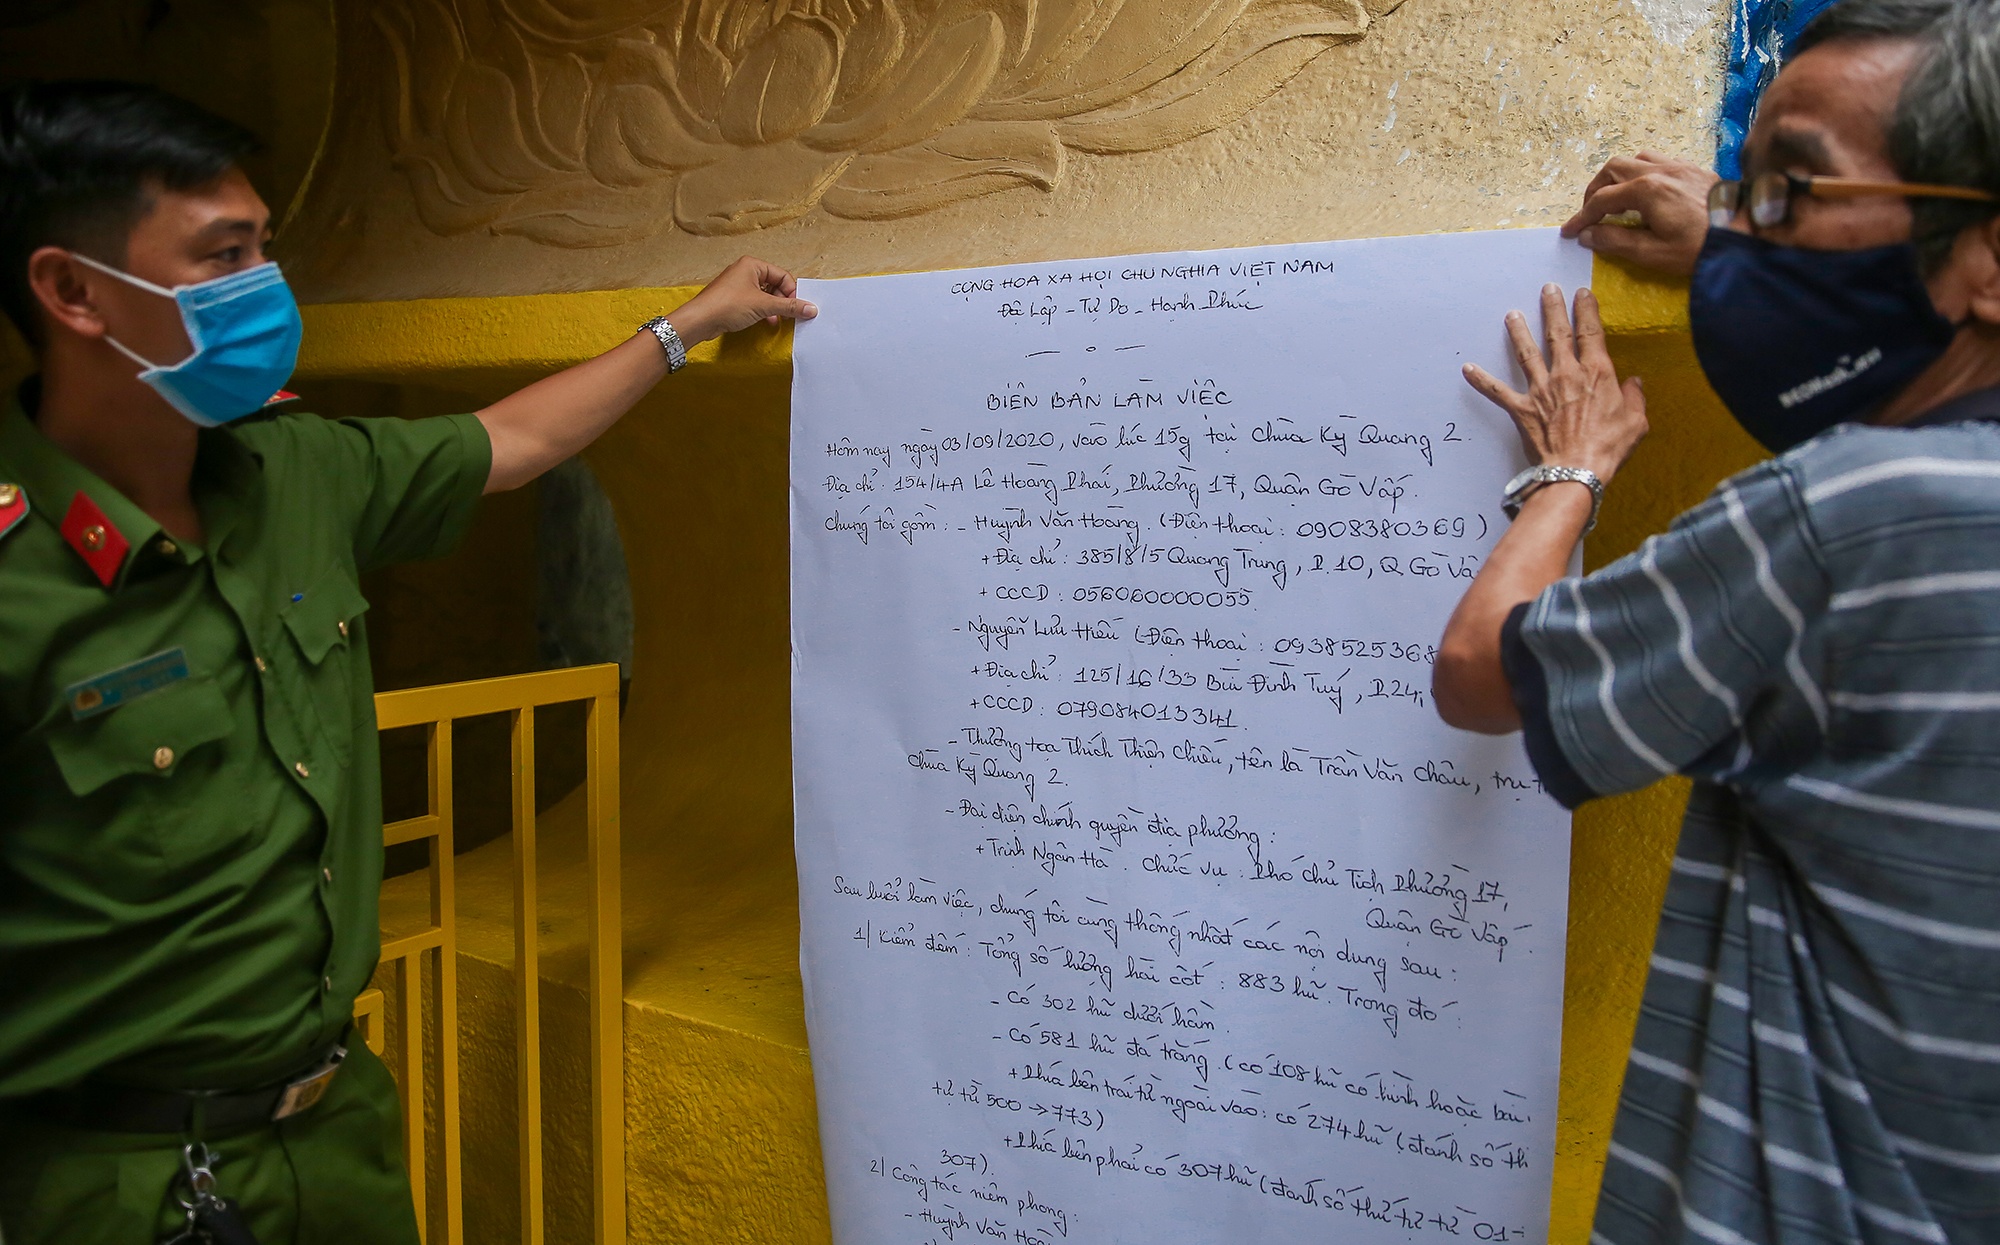 CỘNG HOA XA HỌI CHU NGHIA VIỆT NAM
Độ Lập - Tự Do - Hạnh Phúc
BIÊN BẢN LÀM VIỆC
Hôm nay ngày 03/09/2020, vào lúc 15g tại chùa Kỳ Quang 2.
Địa chỉ: 154/4A Lê Hoàng Phái, Phường 17, Quận Gò Vấp.
Chúng tôi gồm: - Huỳnh Văn Hoàng. (Điện thoại: 0908380369)
+ Địa chỉ: 385/8/5 Quang Trung, P.10, Q Gò Vấ
+ CCCD: 056060000055.
- Nguyễn Lưu Hiếu (Điện thoại: 093852536
+ Địa chỉ: 125/16/33 Bùi Đình Tuý, P.24,
+ CCCD: 079084013341.
- Thượng tọa Thích Thiện Chiếu, tên là Trần Văn Châu, trụ
chùa Kỳ Quang 2.
- Đại diện chính quyền địa phương:
+ Trịnh Ngân Hà. Chức vụ: Phó chủ Tịch Phường 17,
Quận Gò Vấp.
Sau buổi làm việc, chúng tôi cùng thống nhất các nội dung sau:
1/ Kiểm đếm: Tổng số lượng hài cốt: 883 hũ. Trong đó:
- Có 302 hũ dưới hầm.
- Có 581 hũ đá trắng. (có 108 hũ có hình hoặc bài.
+ Phía bên trái từ ngoài vào: có 274 hũ (đánh số th
tự từ 500 → 773)
+ Phía bên phải có 307 hũ (đánh số thứ tự từ 01-
307).
2/ Công tác niêm phong:
- Huỳnh Văn Hoà